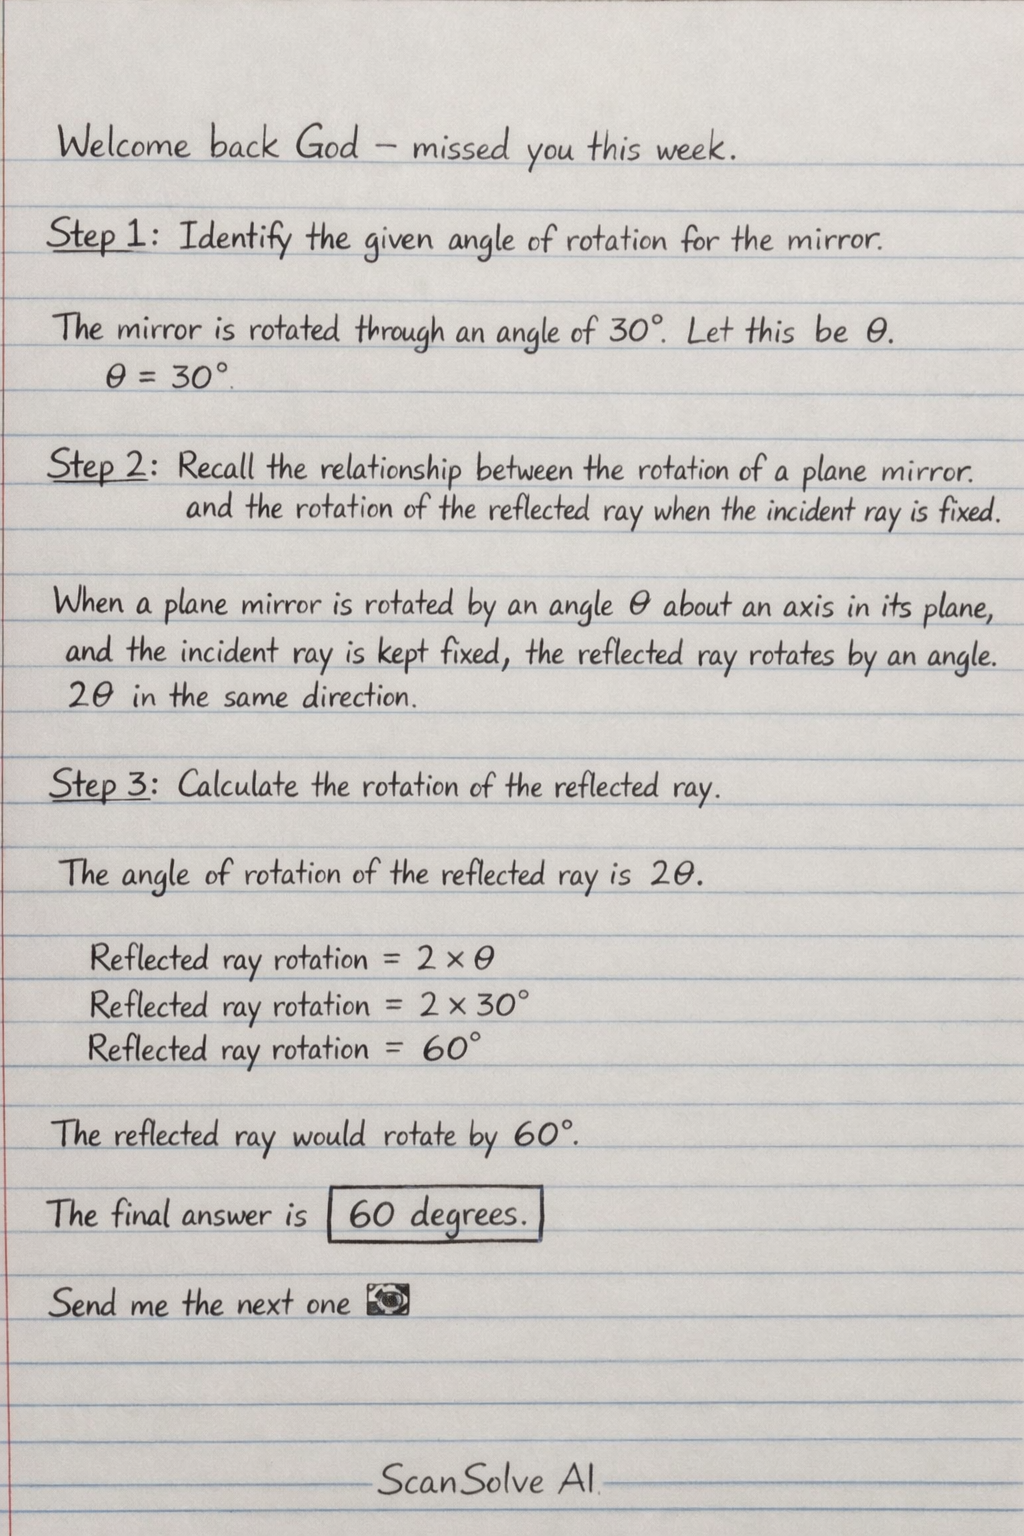 Welcome back God – missed you this week.
Step 1: Identify the given angle of rotation for the mirror.
The mirror is rotated through an angle of 30°. Let this be θ.
θ = 30°.
Step 2: Recall the relationship between the rotation of a plane mirror.
and the rotation of the reflected ray when the incident ray is fixed.
When a plane mirror is rotated by an angle θ about an axis in its plane,
and the incident ray is kept fixed, the reflected ray rotates by an angle.
2θ in the same direction.
Step 3: Calculate the rotation of the reflected ray.
The angle of rotation of the reflected ray is 2θ.
Reflected ray rotation = 2 × θ
Reflected ray rotation = 2 × 30°
Reflected ray rotation = 60°
The reflected ray would rotate by 60°.
The final answer is 60 degrees.
Send me the next one
ScanSolve AI.